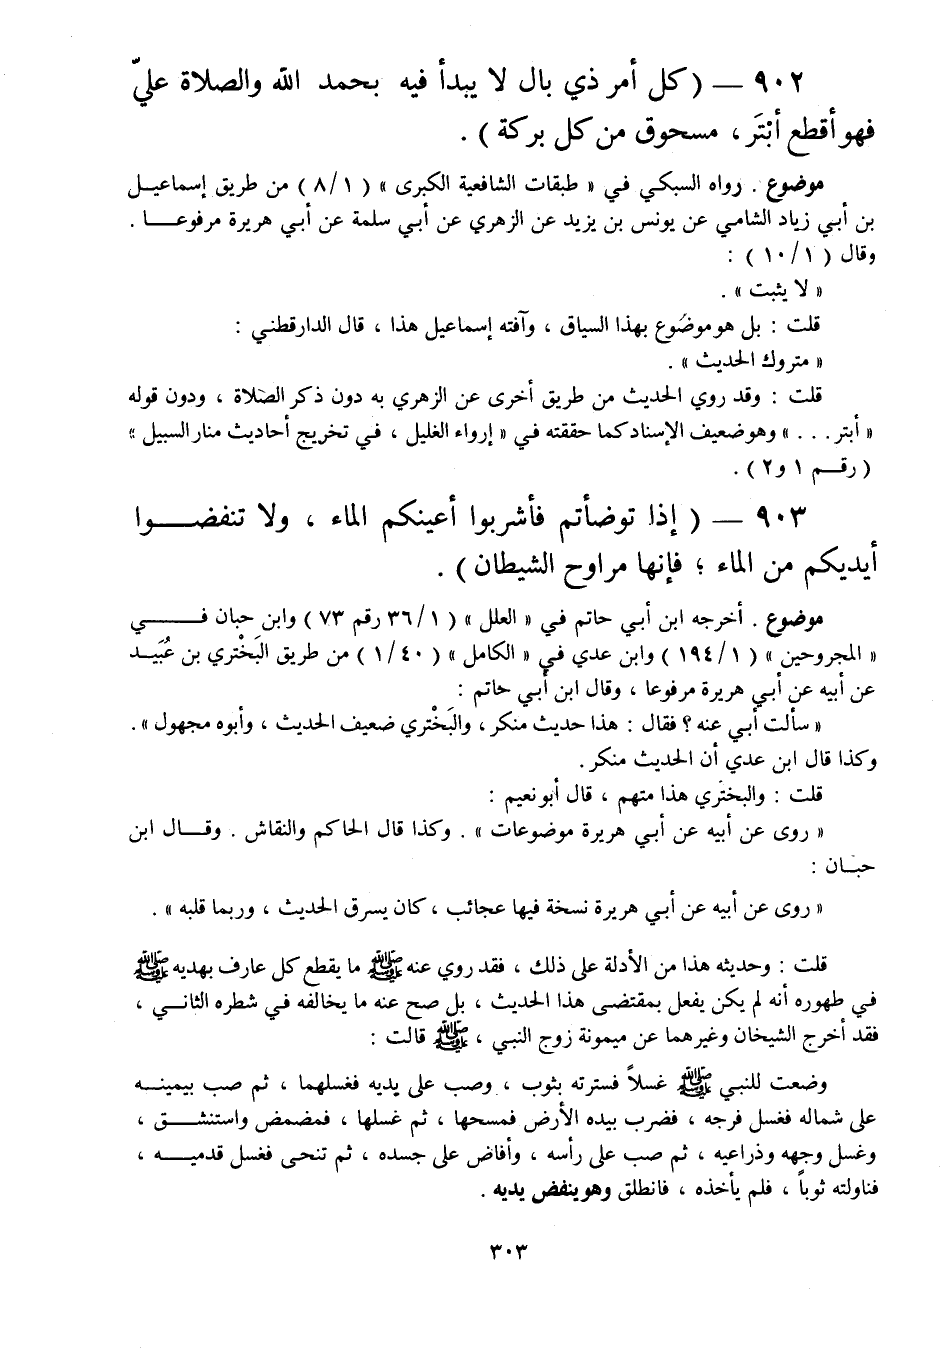 ٩٠٢ — ( كل أمر ذي بال لا يبدأ فيه بحمد الله والصلاة عليّ
فهو أقطع أبْتَر ، مسحوق من كل بركة ) .
موضوع . رواه السبكي في « طبقات الشافعية الكبرى » ( ١/ ٨ ) من طريق إسماعيل
بن أبي زياد الشامي عن يونس بن يزيد عن الزهري عن أبي سلمة عن أبي هريرة مرفوعا .
وقال ( ١/ ١٠ ) :
« لا يثبت » .
قلت : بل هو موضوع بهذا السياق ، وآفته إسماعيل هذا ، قال الدارقطني :
« متروك الحديث » .
قلت : وقد روي الحديث من طريق أخرى عن الزهري به دون ذكر الصلاة ، ودون قوله
« أبتر . . . » وهو ضعيف الإسناد كما حققته في « إرواء الغليل ، في تخريج أحاديث منار السبيل »
( رقم ١ و٢ ) .
٩٠٣ — ( إذا توضأتم فأشربوا أعينكم الماء ، ولا تنفضوا
أيديكم من الماء ؛ فإنها مراوح الشيطان ) .
موضوع . أخرجه ابن أبي حاتم في « العلل » ( ١/ ٣٦ رقم ٧٣ ) وابن حبان في
« المجروحين » ( ١/ ١٩٤ ) وابن عدي في « الكامل » ( ٤٠/ ١ ) من طريق البَخْتري بن عُبَيد
عن أبيه عن أبي هريرة مرفوعا ، وقال ابن أبي حاتم :
« سألت أبي عنه ؟ فقال : هذا حديث منكر ، والبَخْتري ضعيف الحديث ، وأبوه مجهول » .
وكذا قال ابن عدي أن الحديث منكر .
قلت : والبختري هذا متهم ، قال أبو نعيم :
« روى عن أبيه عن أبي هريرة موضوعات » . وكذا قال الحاكم والنقاش . وقال ابن
حبان :
« روى عن أبيه عن أبي هريرة نسخة فيها عجائب ، كان يسرق الحديث ، وربما قلبه » .
قلت : وحديثه هذا من الأدلة على ذلك ، فقد روي عنه ﷺ ما يقطع كل عارف بهديه ﷺ
في طهوره أنه لم يكن يفعل بمقتضى هذا الحديث ، بل صح عنه ما يخالفه في شطره الثاني ،
فقد أخرج الشيخان وغيرهما عن ميمونة زوج النبي ، ﷺ قالت :
وضعت للنبي ﷺ غسلاً فسترته بثوب ، وصب على يديه فغسلهما ، ثم صب بيمينه
على شماله فغسل فرجه ، فضرب بيده الأرض فمسحها ، ثم غسلها ، فمضمض واستنشق ،
وغسل وجهه وذراعيه ، ثم صب على رأسه ، وأفاض على جسده ، ثم تنحى فغسل قدميه ،
فناولته ثوباً ، فلم يأخذه ، فانطلق وهو ينفض يديه .
٣٠٣